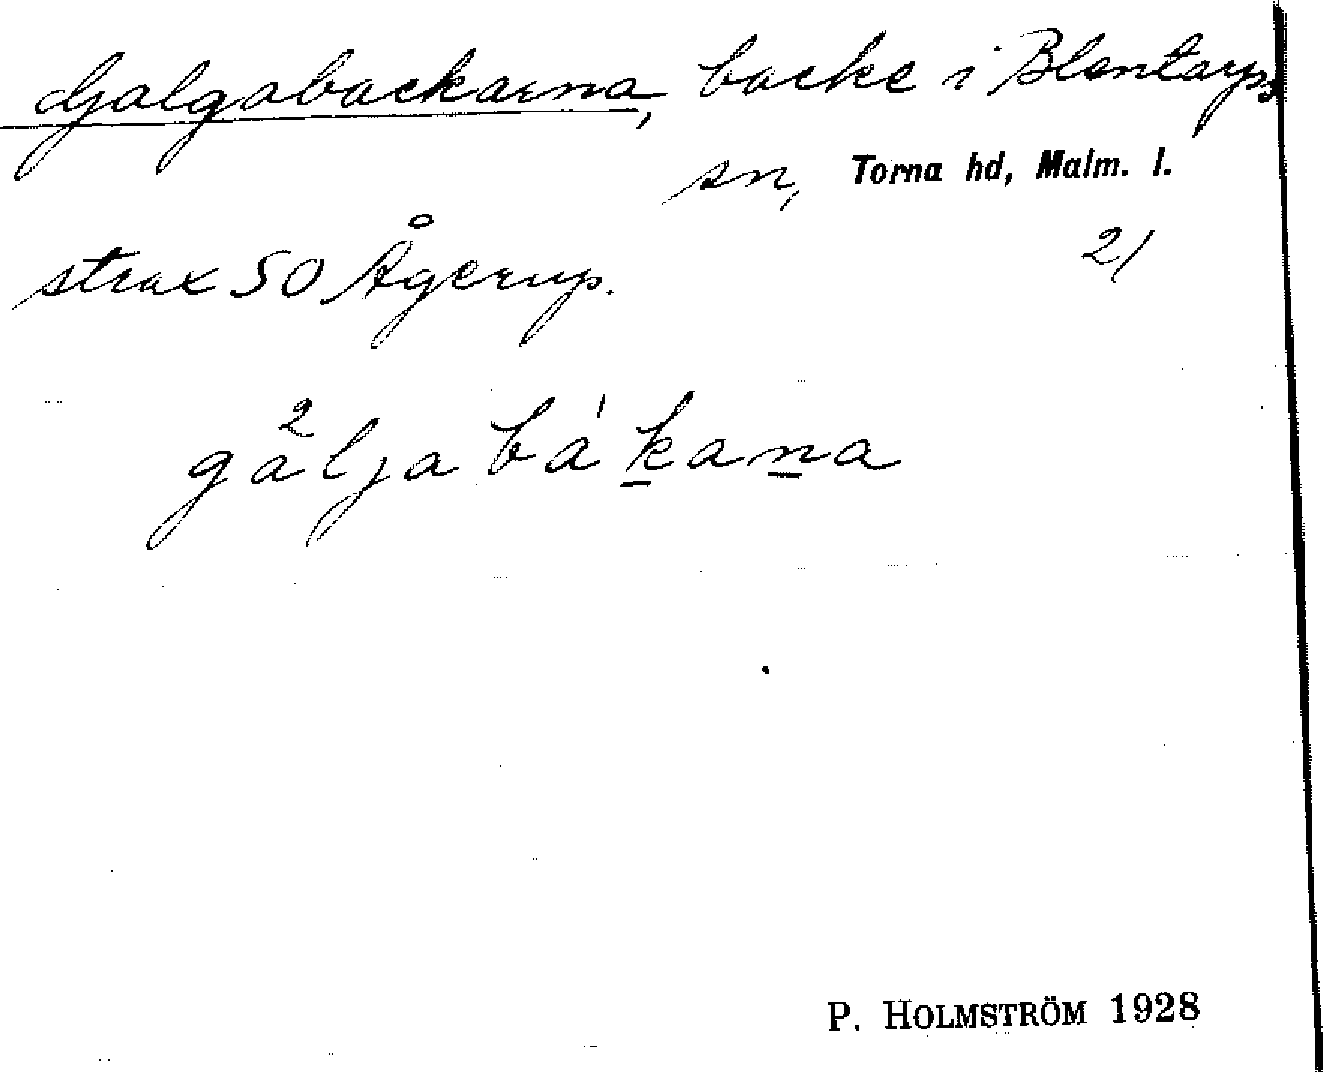 Galgabackarna, backe i Blentarps
sn, Torna hd, Malm. l.
strax SO Ågerup. 21
gålja bákana
P. HOLMSTRÖM 1928